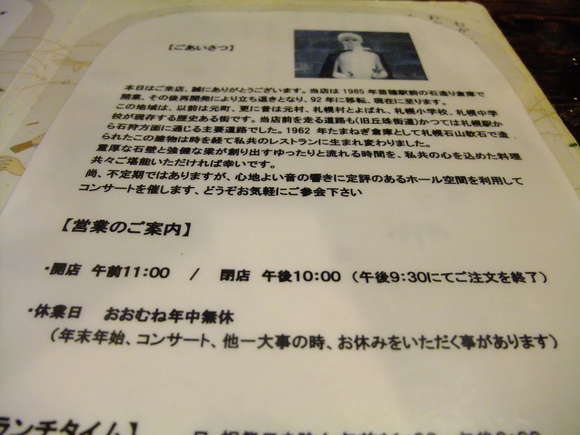 【ごあいさつ】
本日はご来店、誠にありがとうございます。当店は1985年苗穂駅前の石造り倉庫で
開業、その後再開発により立ち退きとなり、92年に移転、現在に至ります。
この地域は、以前は元町、更に昔は元村、札幌村とよばれ、札幌小学校、札幌中学
校が現存する歴史ある街です。当店前を走る道路も(旧五珠街道)かつては札幌駅か
ら石狩方面に通じる主要道路でした。1962年たまねぎ倉庫として札幌石山軟石で造
られたこの建物は時を経て私共のレストランに生まれ変わりました。
重厚な石壁と強健な梁が創り出すゆったりと流れる時間を、私共の心を込めた料理
共々ご堪能いただければ幸いです。
尚、不定期ではありますが、心地よい音の響きに定評のあるホール空間を利用して
コンサートを催します、どうぞお気軽にご参会下さい
【営業のご案内】
・開店 午前11:00 / 閉店 午後10:00 (午後9:30にてご注文を終了)
・休業日 おおむね年中無休
(年末年始、コンサート、他一大事の時、お休みをいただく事があります)
ランチタイム】